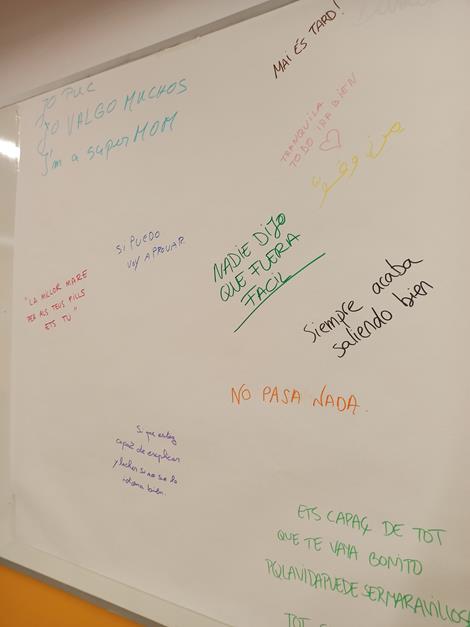 MAI ÉS TARD!
JO PUC
YO VALGO MUCHOS
I'm a super MOM
TRANQUILA
TODO IRA BIEN
SI PUEDO
VOY A PROVAR.
NADIE DIJO
QUE FUERA
FACIL
"LA MILLOR MARE
PER ALS TEUS FILLS
ETS TU"
Siempre acaba
saliendo bien
NO PASA NADA.
Si que estoy
capaz de explicar
y luchar si no se la
idioma bien.
ETS CAPAÇ DE TOT
QUE TE VAYA BONITO
PQLAVIDAPUEDESERMARAVILLOS
TOT